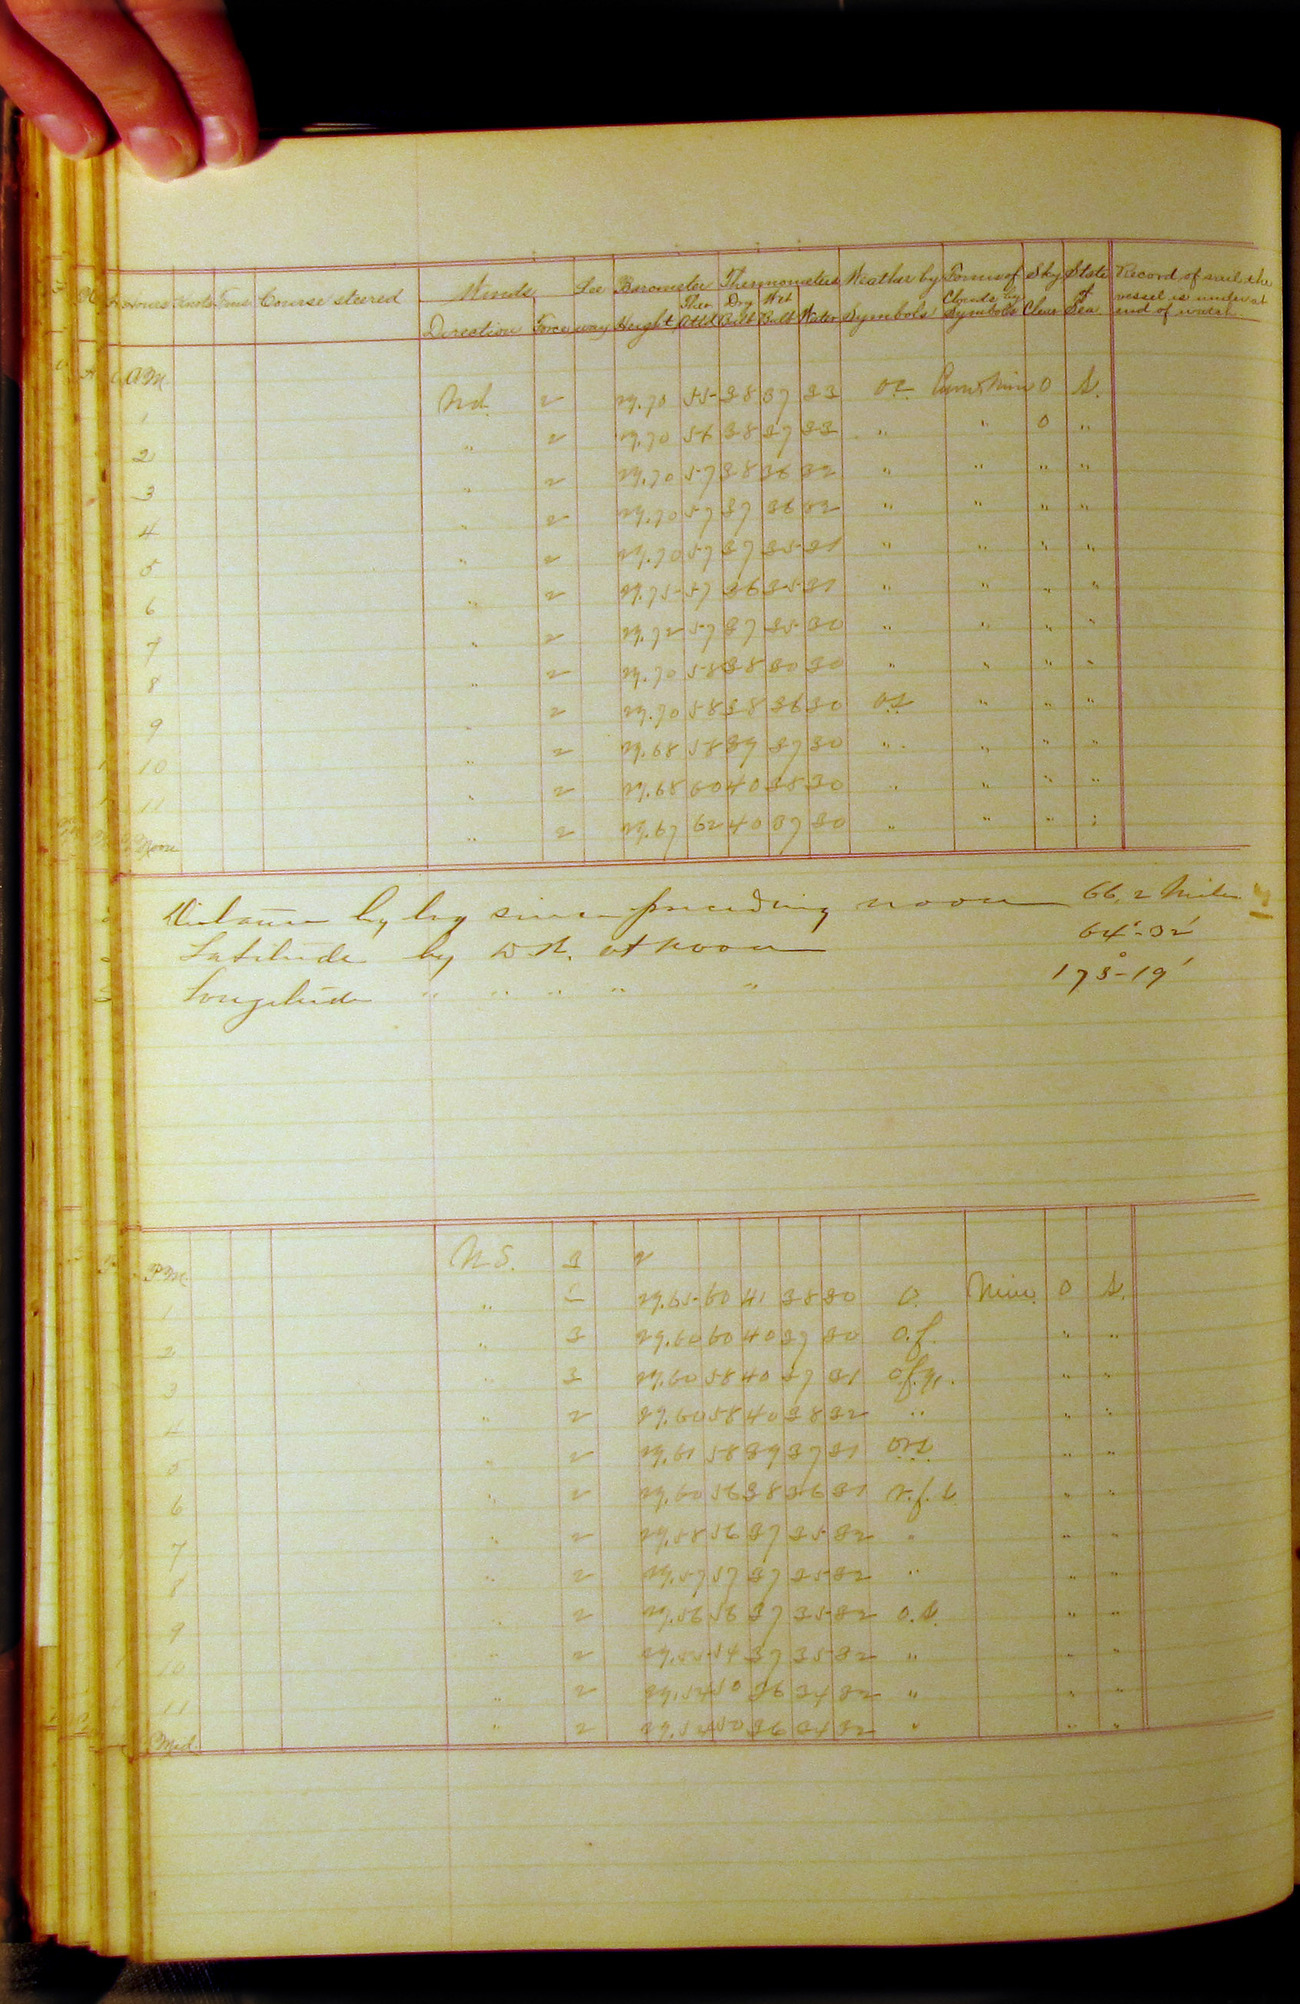 Hours Knots Tens Course steered Winds Lee Barometer Thermometers Weather by Forms of Sky State Record of sail the
Direction Force way Height Ther. Attd Dry Bulb Wet Bulb Water Symbols Clouds by Symbols Clear of Sea vessel is under at end of watch
A.M.
1 Nd. 2 29.70 55 38 37 33 0 S.
2 " 2 29.70 56 38 37 33 " " 0 "
3 " 2 29.70 57 38 36 32 " " " "
4 " 2 29.70 57 37 36 32 " " " "
5 " 2 29.70 57 37 35 31 " " " "
6 " 2 29.75 57 36 35 31 " " " "
7 " 2 29.72 57 37 35 30 " " " "
8 " 2 29.70 58 38 30 30 " " " "
9 " 2 29.70 58 38 36 30 " " "
10 " 2 29.68 58 39 37 30 " " " "
11 " 2 29.68 60 40 38 30 " " " "
Noon " 2 29.67 62 40 37 30 " " " "
Distance by log since preceding noon 66.2 Miles
Latitude by D.R. at noon 64°-32'
Longitude " " " " " 173°-19'
P.M. 3
1 " 29.65 60 41 38 30 O. Nim. 0 S.
2 " 3 29.60 60 40 37 30 o.f. " "
3 " 3 29.60 58 40 37 31 " "
4 " 2 29.60 58 40 38 32 " " "
5 " 2 29.61 58 39 37 31 " "
6 " 2 29.60 56 38 36 31 " "
7 " 2 29.58 56 37 35 32 " " "
8 " 2 29.57 57 37 35 32 " " "
9 " 2 29.56 56 37 35 32 o.s. " "
10 " 2 29.55 54 37 35 32 " " "
11 " 2 29.54 50 36 34 32 " " "
Mid. " 2 29.54 50 36 34 32 " " "